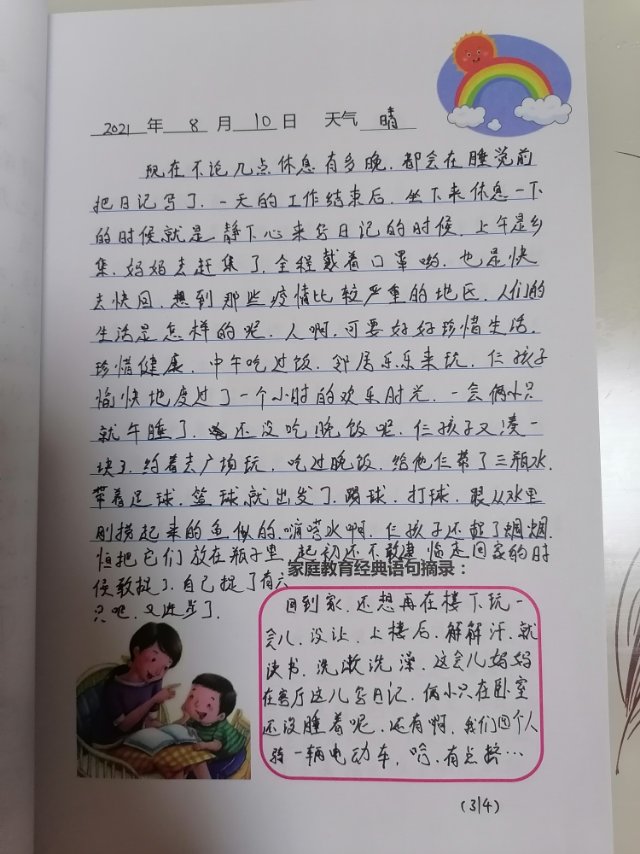 2021 年 8 月 10 日 天气 晴
现在不论几点休息有多晚,都会在睡觉前
把日记写了.一天的工作结束后,坐下来休息一下
的时候就是静下心来写日记的时候,上午是乡
集,妈妈去赶集了,全程戴着口罩哟,也是快
去快回,想到那些疫情比较严重的地区,人们的
生活是怎样的呢,人啊,可要好好珍惜生活,
珍惜健康,中午吃过饭,邻居乐乐来玩,仨孩子
愉快地度过了一个小时的欢乐时光,一会俩小只
就午睡了,还没吃晚饭呢,仨孩子又凑一
块了,约着去广场玩,吃过晚饭,给他仨带了三瓶水,
带着足球,篮球就出发了,踢球,打球,跟从水里
刚捞起来的鱼似的,嘀嗒水啊,仨孩子还捉了蝈蝈,
恒把它们放在瓶子里,起初还不敢逮,临走回家的时
候敢捉了,自己捉了有六
只吧,又进步了.
家庭教育经典语句摘录:
回到家,还想再在楼下玩一
会儿,没让,上楼后,解解汗,就
读书,洗漱洗澡,这会儿妈妈
在客厅这儿写日记,俩小只在卧室
还没睡着呢,还有啊,我们四个人
骑一辆电动车,哈,有点挤…
(314)